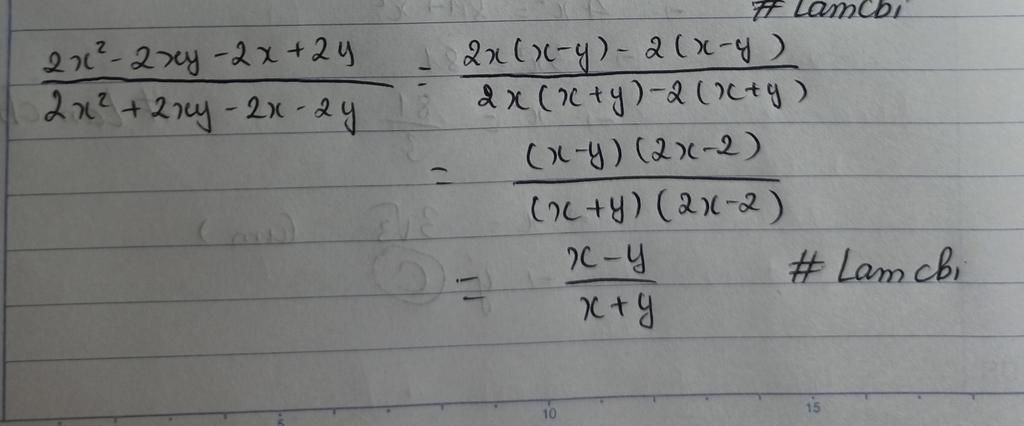 # Lamcbi
2x² - 2xy - 2x + 2y / 2x² + 2xy - 2x - 2y = 2x(x-y) - 2(x-y) / 2x(x+y) - 2(x+y)
= (x-y)(2x-2) / (x+y)(2x-2)
= x-y / x+y # Lamcbi
5 10 15